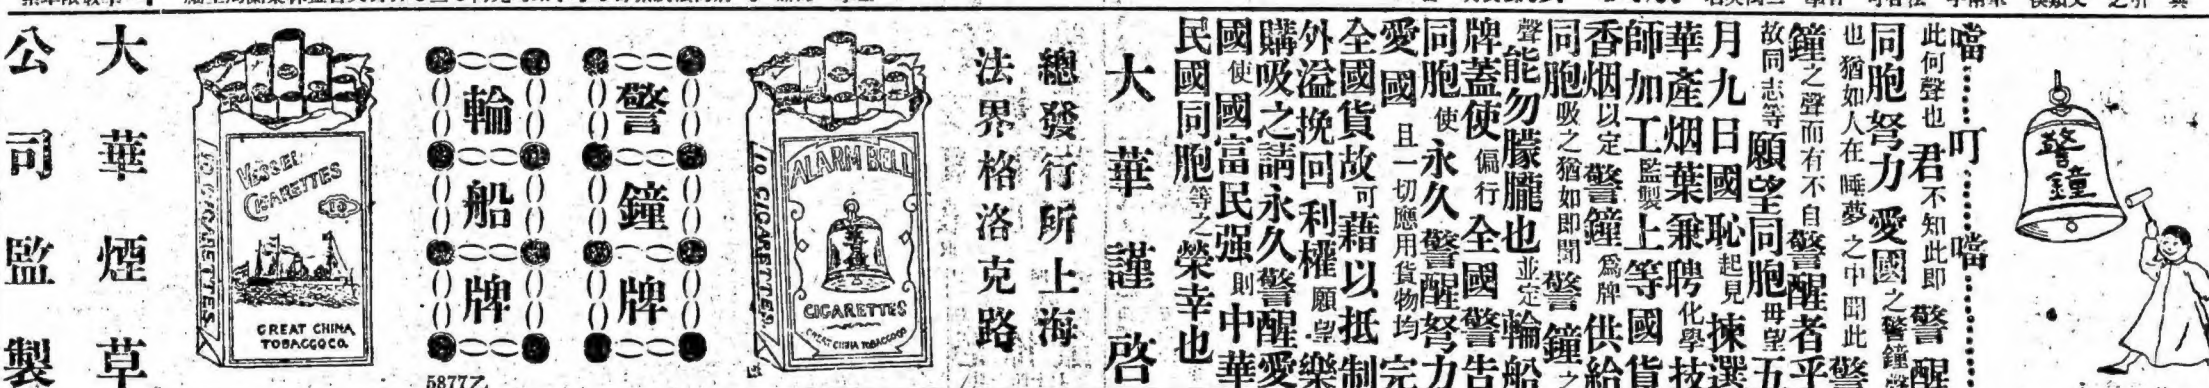 警鐘
噹……叮……噹………
此何聲也君不知此即警醒
同胞努力愛國之警鐘聲
也猶如人在睡夢之中聞此警
鐘之聲而有不自警醒者乎
故同志等願望同胞毋望五
月九日國恥起見揀選
華產烟葉兼聘化學技
師加工監製上等國貨
香烟以定警鐘爲牌供給
同胞吸之猶如即聞警鐘之
聲能勿朦朧也並定輪船
牌蓋使偏行全國警告
同胞使永久警醒努力
愛國且一切應用貨物均完
全國貨故可藉以抵制
外溢挽回利權願望樂
購吸之請永久警醒愛
國使國富民强則中華
民國同胞等之榮幸也
大華謹啓
總發行所上海
法界格洛克路
ALARM BELL
警鐘
CIGARETTES
GREAT CHINA TOBACCO CO.
10 CIGARETTES
警鐘牌
輪船牌
5877乙
VESSEL
CIGARETTES
10
GREAT CHINA
TOBACCO CO.
10 CIGARETTES
大華煙草
公司監製